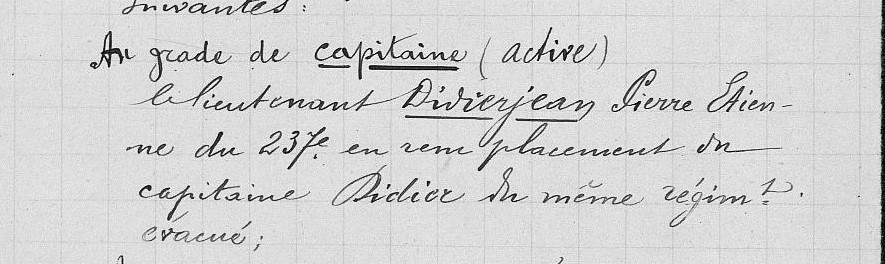 suivantes :
Au grade de capitaine (active)
le lieutenant Didierjean Pierre Etien-
ne du 237e en remplacement du
capitaine Didier du même régimt.
évacué ;